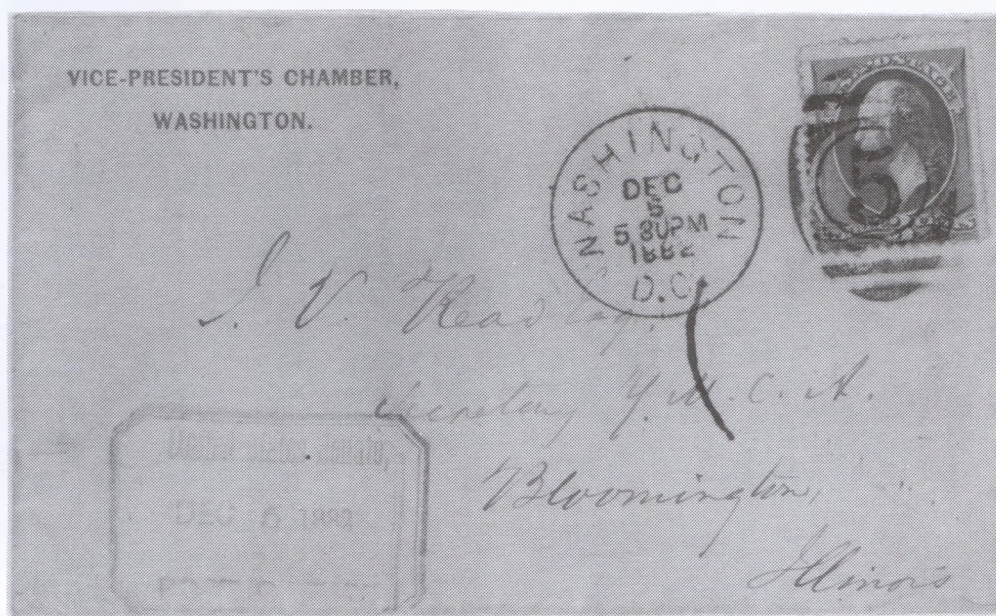 VICE-PRESIDENT'S CHAMBER,
WASHINGTON.
WASHINGTON
DEC
5
5 30PM
1882
D.C.
5
J. V. Read Esq.,
Secretary Y.M.C.A.
Bloomington,
Illinois
United States Senate,
DEC 5 1882